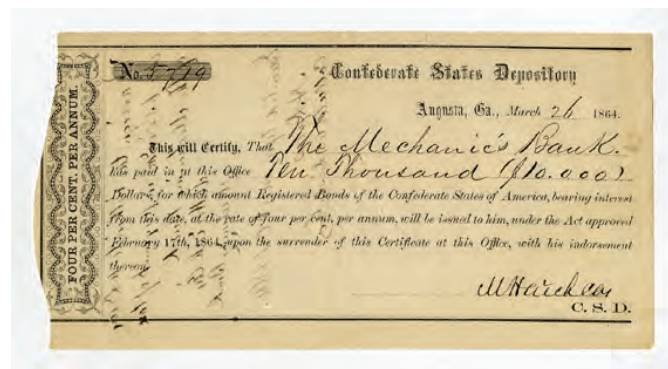 FOUR PER CENT. PER ANNUM.
No. 5719
Confederate States Depository
Augusta, Ga., March 26 1864.
This will Certify, That The Mechanic's Bank.
has paid in at this Office Ten Thousand ($10.000)
Dollars, for which amount Registered Bonds of the Confederate States of America, bearing interest
from this date, at the rate of four per cent, per annum, will be issued to him, under the Act approved
February 17th, 1864, upon the surrender of this Certificate at this Office, with his indorsement
thereon.
C. S. D.